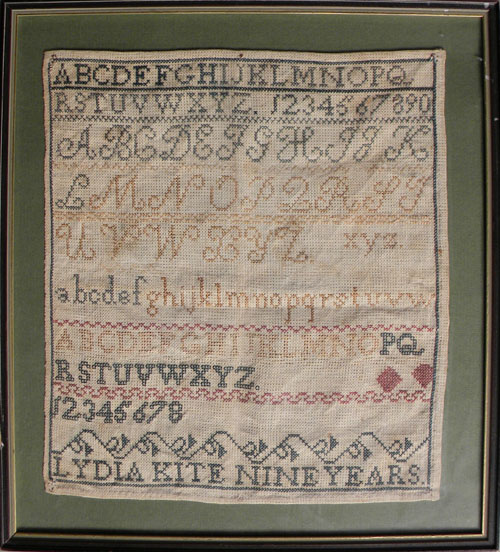 ABCDEFGHIJKLMNOPQ
RSTUVWXYZ. 1234567890
ABCDEFGHIJK
LMNOPQRST
UVWXYZ xyz.
abcdefghijklmnopqrstuvw
ABCDEFGHIJKLMNOPQ
RSTUVWXYZ.
12345678
LYDIA KITE NINE YEARS.